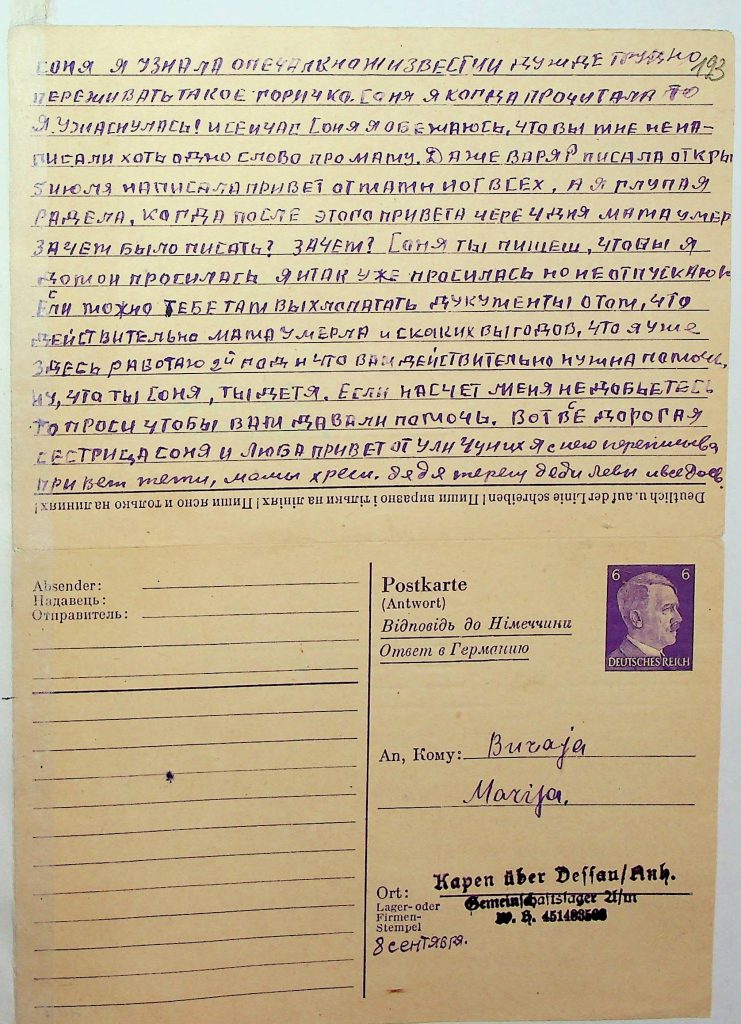 193
СОНЯ Я УЗНАЛА О ПЕЧАЛЬНОМ ИЗВЕСТИИ ТРУДНО
ПЕРЕЖИВАТЬ ТАКОЕ ГОРИЧКО. СОНЯ Я КОГДА ПРОЧИТАЛА ТО
Я УЖАСНУЛАСЬ! И СЕЙЧАС СОНЯ Я ОБЕЖАЮСЬ, ЧТО ВЫ МНЕ НЕ НА-
ПИСАЛИ ХОТЬ ОДНО СЛОВО ПРО МАМУ. ДАЖЕ ВАРЯ ПИСАЛА ОТКРЫ
5 ИЮЛЯ НАПИСАЛА ПРИВЕТ ОТ МАМЫ И ОТ ВСЕХ, А Я ГЛУПАЯ
РАДЕЛА, КОГДА ПОСЛЕ ЭТОГО ПРИВЕТА ЧЕРЕ 4 ДНЯ МАМА УМЕР
ЗАЧЕМ БЫЛО ПИСАТЬ? ЗАЧЕМ? СОНЯ ТЫ ПИШЕШ, ЧТОБЫ Я
ДОМОЙ ПРОСИЛАСЬ Я И ТАК УЖЕ ПРОСИЛАСЬ НО НЕ ОТПУСКАЮ
ЕСЛИ МОЖНО ТЕБЕ ТАМ ВЫХЛАПАТАТЬ ДУКУМЕНТЫ О ТОМ, ЧТО
ДЕЙСТВИТЕЛЬНО МАМА УМЕРЛА И СКОКИХ ВЫ ГОДОВ, ЧТО Я УЖЕ
ЗДЕСЬ РАБОТАЮ 2й ГОД И ЧТО ВАМ ДЕЙСТВИТЕЛЬНО НУЖНА ПАМОЧЬ,
НУ, ЧТО ТЫ СОНЯ, ТЫ ДЕТЯ. ЕСЛИ НАСЧЕТ МЕНЯ НЕ ДОБЬЕТЕСЬ
ТО ПРОСИ ЧТОБЫ ВАМ ДАВАЛИ ПАМОЧЬ. ВОТ ВСЕ ДОРОГАЯ
СЕСТРИЦА СОНЯ И ЛЮБА ПРИВЕТ ОТ УЛИ Я С НЕЮ
ПРИВЕТ ТЕТИ, МАМЫ ХРЕСН. ДЯДЯ ДЕДИ ЛЕВЫ И
Deutlich u. auf der Linie schreiben! Пиши виразно і тільки на лініях! Пиши ясно и только на линиях!
Absender:
Надавець:
Отправитель:
Postkarte
(Antwort)
Відповідь до Німеччини
Ответ в Германию
6 6
DEUTSCHES REICH
An, Кому: Buraja
Marija.
Ort:
Lager- oder
Firmen-
Stempel
Kapen über Dessau/Anh.
Gemeinschaftslager
8 СЕНТЯБРЯ.